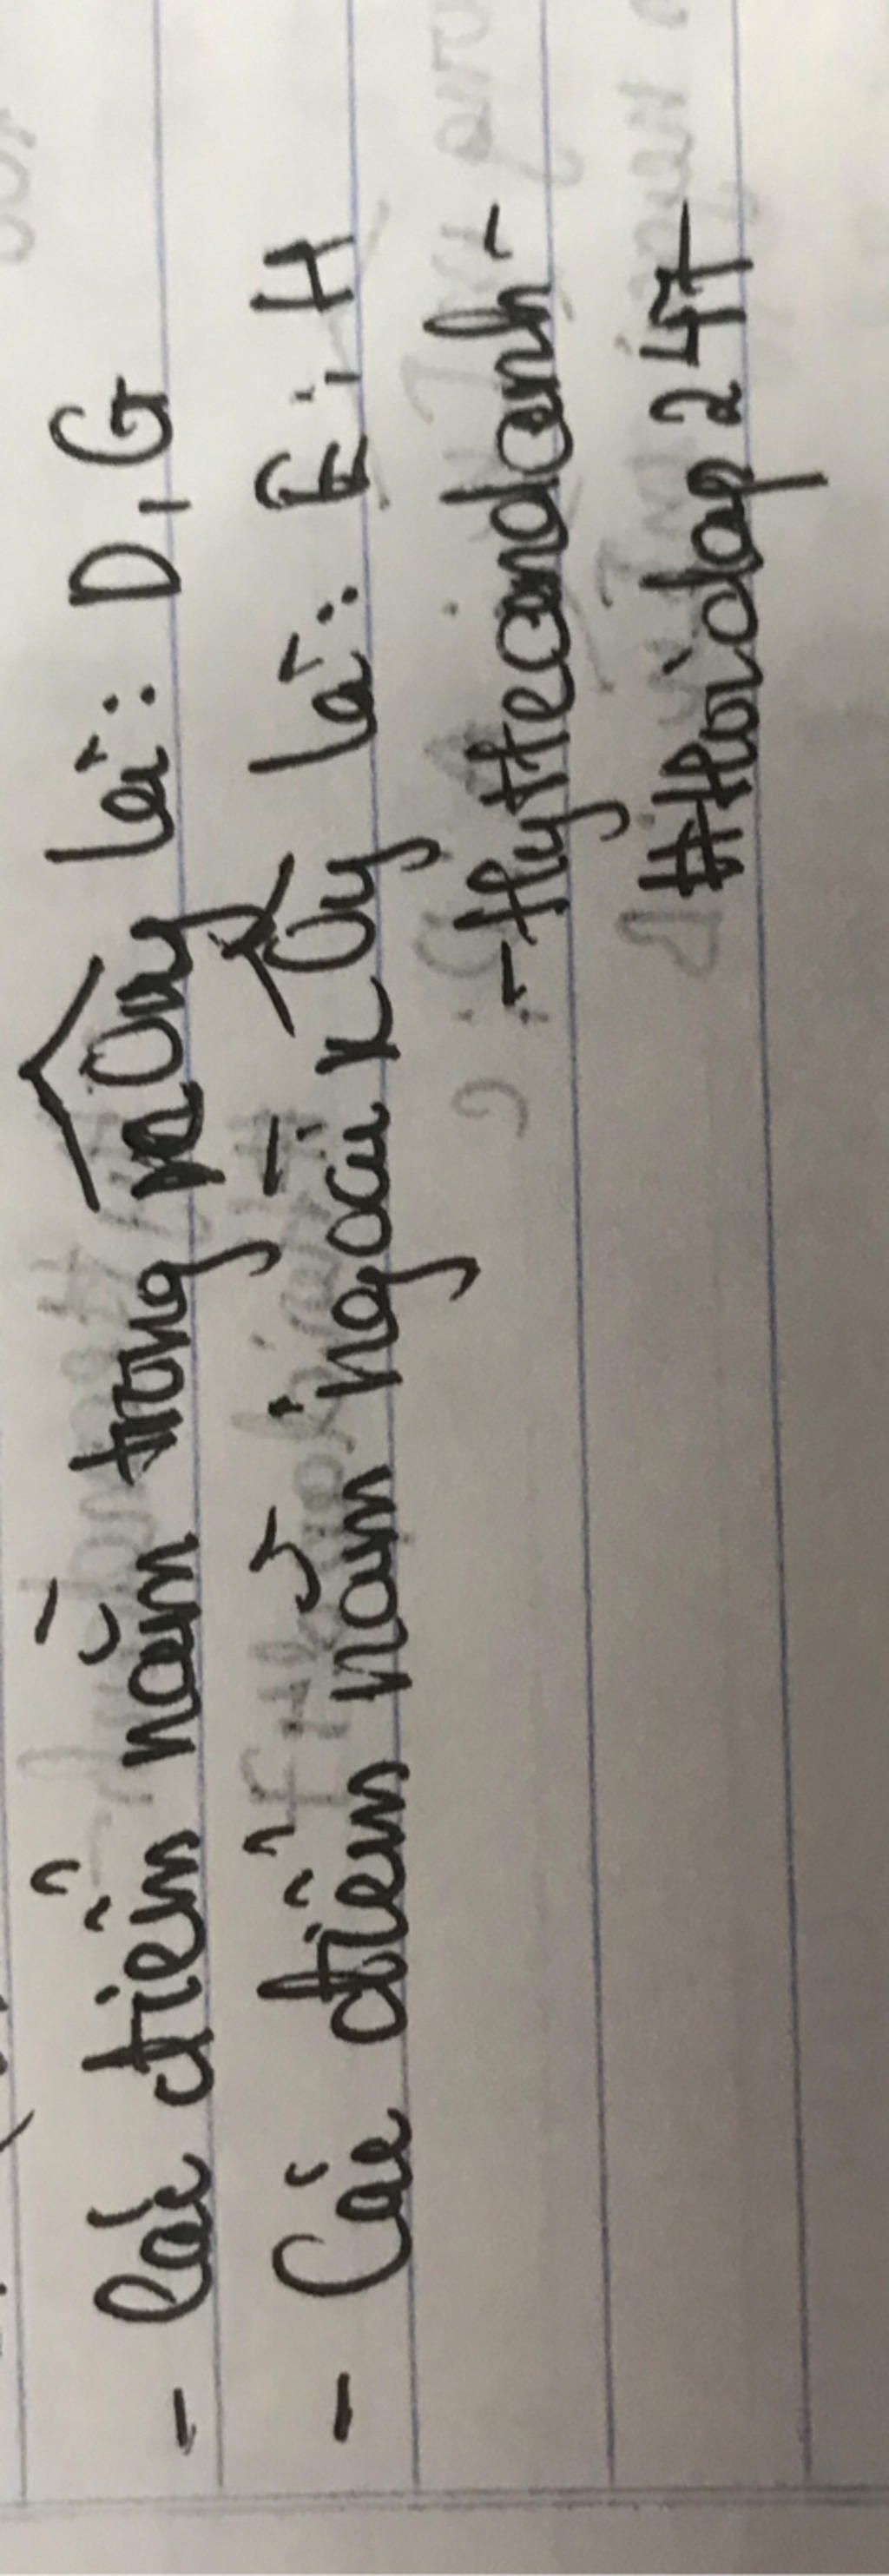 - Các điểm nằm trong xOy là: D, G
- Các điểm nằm ngoài xOy là: E; H
-thyttecandanh-
#Hoidap247